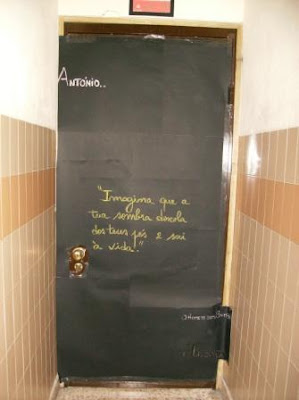 António..
"Imagina que a
tua sombra descola
dos teus pés e sai
à vida."